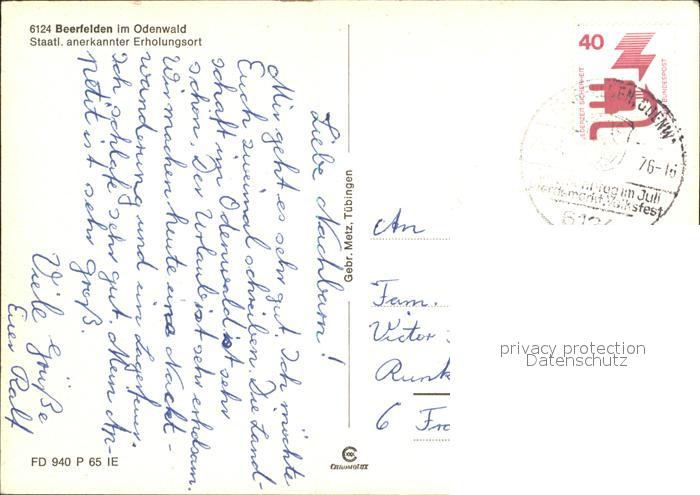 6124 Beerfelden im Odenwald
Staatl. anerkannter Erholungsort
Liebe Nachbarn!
Mir geht es sehr gut. Ich möchte
Euch zweimal schreiben. Die Land-
schaft im Odenwald ist sehr
schön. Der Urlaub ist sehr erholsam.
Wir machen heute eine Nacht-
wanderung und ein Lagerfeuer.
Ich schlafe sehr gut. Mein Ap-
petit ist sehr groß.
Viele Grüße
Euer Ralf
Gebr. Metz, Tübingen
40
JEDERZEIT SICHERHEIT
BUNDESPOST
ODENW.
76-16
im Juli
Volksfest
6124
An
Fam.
Victor
6 Fra
privacy protection
Datenschutz
FD 940 P 65 IE
CHROMOLUX